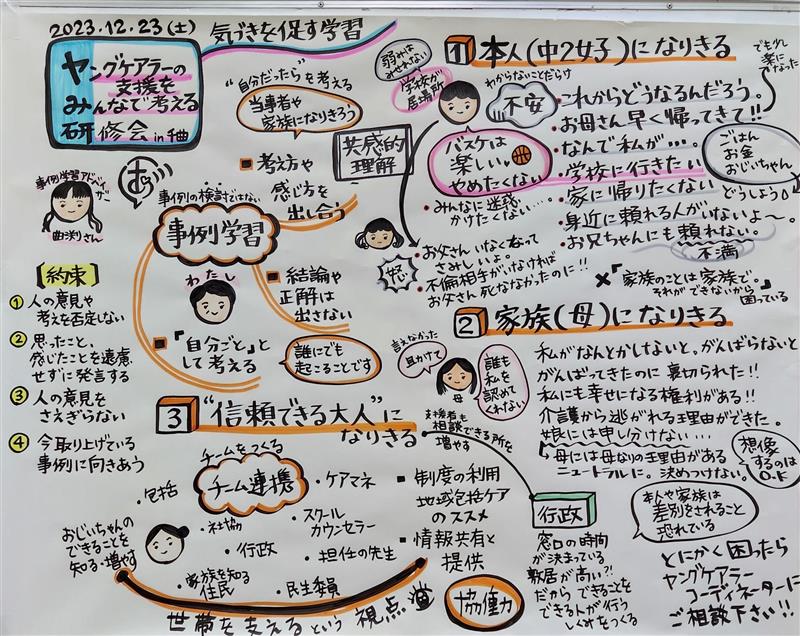 2023.12.23(土)
気づきを促す学習
ヤングケアラーの
支援を
みんなで考える
研修会 in
事例学習アドバイザー
さん
【約束】
① 人の意見や
考えを否定しない
② 思ったこと、
感じたことを遠慮
せずに発言する
③ 人の意見を
さえぎらない
④ 今取り上げている
事例に向きあう
"自分だったら"を考える
当事者や
家族になりきろう
考え方や
感じ方を
出し合う
事例の検討ではない
事例学習
わたし
結論や
正解は
出さない
『自分ごと』と
して考える
誰にでも
起こることです
共感的
理解
1 本人(中2女子)になりきる
弱みは
みせれない
学校が
居場所
わからないことだらけ
不安
バスケは
楽しい。
やめたくない
・みんなに迷惑
かけたくない…
・これからどうなるんだろう。
・お母さん早く帰ってきて!!
・なんで私が…。
・学校に行きたい
・家に帰りたくない
・身近に頼れる人がいないよ〜。
・お兄ちゃんにも頼れない。
不満
でも少し
楽になった
ごはん
お金
おじいちゃん
どうしよう
怒
・お父さんいなくなって
さみしいよ。
・不倫相手がいなければ
お父さん死ななかったのに!!
×『家族のことは家族で。
それができないから
困っている
2 家族(母)になりきる
言えなかった
助けて
母
誰も
私を
認めて
くれない
私がなんとかしないと。がんばらないと
がんばってきたのに 裏切られた!!
私にも幸せになる権利がある!!
介護から逃がれる理由ができた。
娘には申し分けない…
母には母なりの理由がある
ニュートラルに。決めつけない。
想像
するのは
O.K
3 "信頼できる大人"に
なりきる
チームをつくる
チーム連携
・包括
・社協
・行政
・家族を知る
住民
・ケアマネ
・スクール
カウンセラー
・担任の先生
・民生委員
おじいちゃんの
できることを
知る・増やす
世帯を支えるという視点
支援者も
相談できる所を
増やす
制度の利用
地域包括ケア
のススメ
情報共有と
提供
協働力
行政
窓口の時間
が決まっている
敷居が高い?!
だからできることを
できる人が行う
しくみをつくる
本人や家族は
差別をされること
恐れている
とにかく困ったら
ヤングケアラー
コーディネーターに
ご相談下さい!!